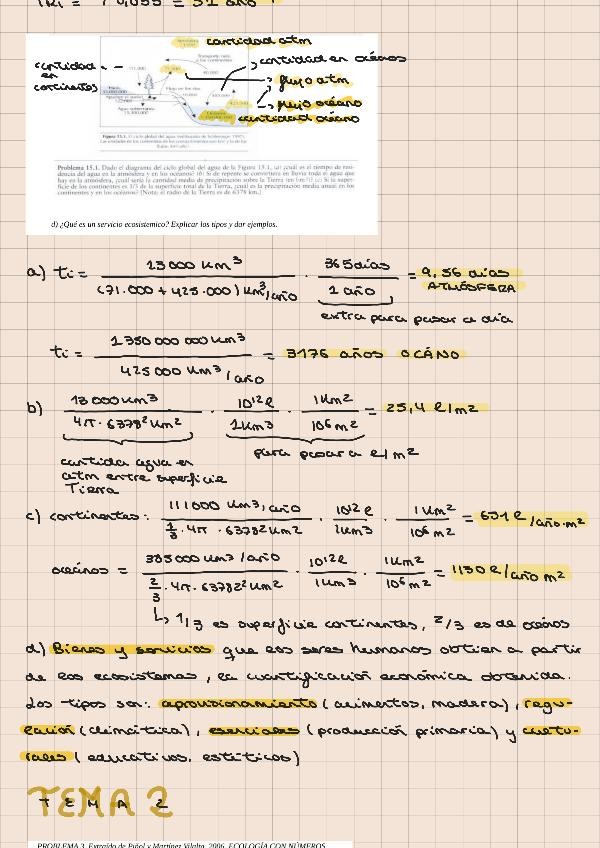 cantidad atm
cantidad en continentes
cantidad en océanos
flujo atm
flujo océano
cantidad océano
Problema 15.1. Dado el diagrama del ciclo global del agua de la Figura 15.1, (a) ¿cuál es el tiempo de resi-
dencia del agua en la atmósfera y en los océanos? (b) Si de repente se convirtiera en lluvia toda el agua que
hay en la atmósfera, ¿cuál sería la cantidad media de precipitación sobre la Tierra (en l/m²)? (c) Si la super-
ficie de los continentes es 1/3 de la superficie total de la Tierra, ¿cuál es la precipitación media anual en los
continentes y en los océanos? [Nota: el radio de la Tierra es de 6378 km.]
d) ¿Qué es un servicio ecosistemico? Explicar los tipos y dar ejemplos.
a) ti = 13 000 km³ / (71.000 + 425.000) km³/año · 365 días / 1 año = 9,56 días ATMÓSFERA
extra para pasar a día
ti = 1 350 000 000 km³ / 425 000 km³/año = 3176 años OCÁNO
b) 13 000 km³ / 4π · 6378² km² · 10¹² l / 1 km³ · 1 km² / 10⁶ m² = 25,4 l/m²
cantida agua en atm entre superficie Tierra
para pasar a l/m²
c) continentes: 111000 km³/año / 1/3 · 4π · 6378² km² · 10¹² l / 1 km³ · 1 km² / 10⁶ m² = 651 l/año·m²
oceános = 385 000 km³/año / 2/3 · 4π · 6378² km² · 10¹² l / 1 km³ · 1 km² / 10⁶ m² = 1130 l/año m²
↳ 1/3 es superficie continentes, 2/3 es de oceános
d) Bienes y servicios que los seres humanos obtien a partir
de los ecosistemas, la cuantificación económica obtenida.
Los tipos son: aprovisionamiento (alimentos, madera), regu-
lación (climática), esenciales (producción primaria) y cultu-
rales (educativos, estéticos)
TEMA 2
PROBLEMA 3. Extraído de Piñol y Martínez Vilalta. 2006. ECOLOGÍA CON NÚMEROS